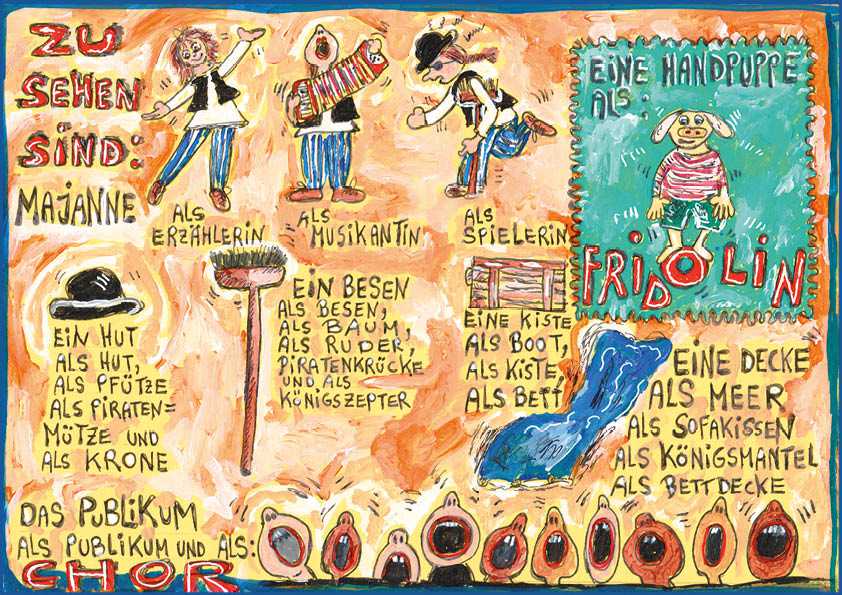 ZU
SEHEN
SIND:
MAJANNE
ALS
ERZÄHLERIN
ALS
MUSIKANTIN
ALS
SPIELERIN
EINE HANDPUPPE
ALS:
FRIDOLIN
EIN HUT
ALS HUT,
ALS PFÜTZE
ALS PIRATEN=
MÜTZE UND
ALS KRONE
EIN BESEN
ALS BESEN,
ALS BAUM,
ALS RUDER,
PIRATENKRÜCKE
UND ALS
KÖNIGSZEPTER
EINE KISTE
ALS BOOT,
ALS KISTE,
ALS BETT
EINE DECKE
ALS MEER
ALS SOFAKISSEN
ALS KÖNIGSMANTEL
ALS BETTDECKE
DAS PUBLIKUM
ALS PUBLIKUM UND ALS:
CHOR